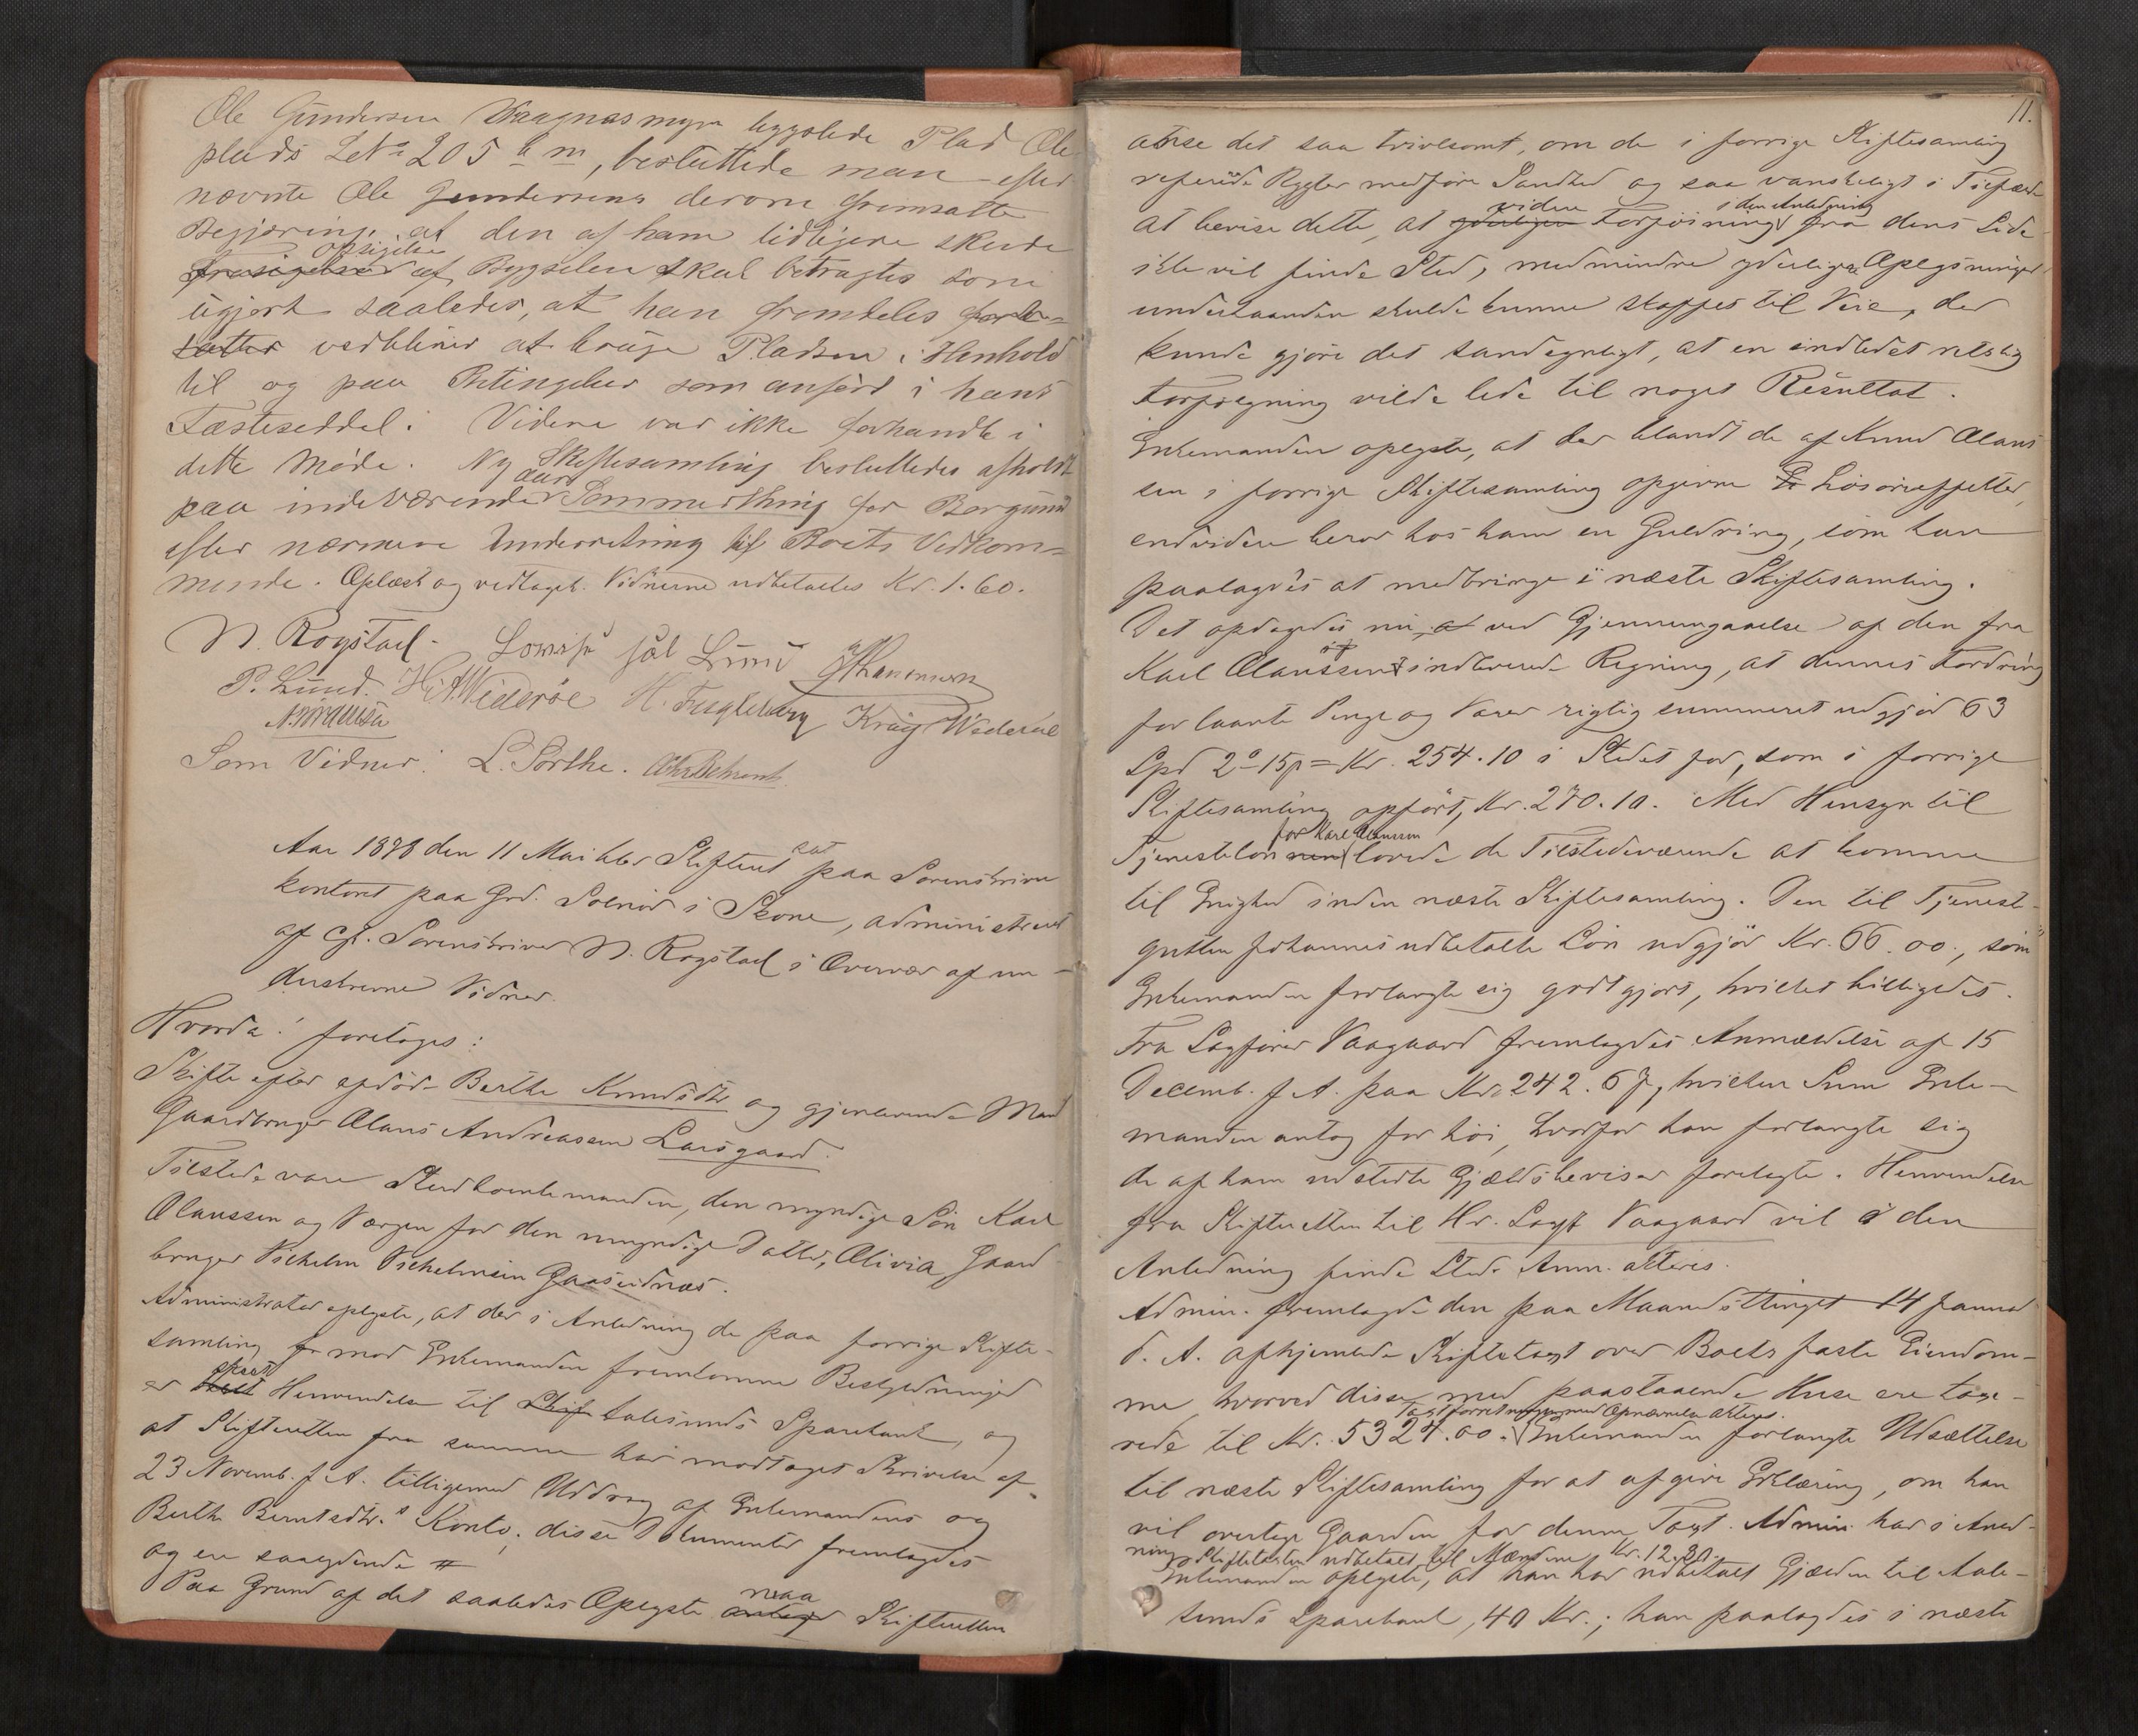 Ole Gundersen Kragnasmyr bygslede Plad Ole
plads L No 205 b m, besluttede man efter
nævnte Ole Gundersens derom fremsatte
Begjæring, at den af ham tidligere skeede
opsigelse
af Bygselen skal betragtes som
ugjort saaledes, at han fremdeles
vedbliver at bruge Pladsen i Henhold
til og paa Betingelser som anført i hans
Fæsteseddel. Videre var ikke forhandle i
dette Møde. Ny Skiftesamling besluttedes afholdt
paa indeværende Aars Sommerthing for Borgund
efter nærmere Underretning til Boets Vedkom=
mende. Oplæst og vedtaget. Vidnerne udbetaltes Kr. 1.60.
N. Rogstad. Lund
P. Lund. H. A. Widerøe H. Fugleberg
Som Vidner: L. Sørthe.
Aar 1878 den 11 Mai blev Skifteret sat paa Sorenskriver
kontoret paa Grd. Solnør i Skone, administreret
af cst. Sorenskriver N. Rogstad i Overvær af un-
derskrevne Vidner.
Hvorda! foretoges:
Skifte efter afdød Berthe Knudsdtr og gjenlevende Mand
Gaardbruger Olaus Andreassen Larsgaard.
Tilstede vare Sterbboenkemanden, den myndige Søn Karl
Olaussen og Værgen for den umyndige Datter, Olivia, Gaard
bruger Vilhelm Vilhelmsen Gaaseidnæs.
Administrator oplyste, at der i Anledning de paa forrige Skifte-
samling mod Enkemanden fremkomne Beskyldninger
er skeet Henvendelse til Aalesunds Sparebank, og
at Skifteretten fra samme har modtaget Skrivelse af
23 Novemb. f. A. tilligemed Uddrag af Enkemandens og
Berth. Berntsdtr.s Konto; disse Dokumenter fremlagdes
og ere saalydende #
Paa Grund af det saaledes Oplyste maa Skifteretten
11.
ansee det saa tvivlsomt, om de i forrige Skiftesamling
refererede Rygter medføre Sandhed og saa vanskeligt i Tilfælde
at bevise dette, at videre Forføining i den Anledning fra dens Side
ikke vil finde Sted, medmindre yderligere Oplysninger
underhaanden skulde kunne skaffes til Veie, der
kunde gjøre det sandsynligt, at en indledet retslig
Forfølgning vilde lede til noget Resultat.
Enkemanden oplyste, at der blandt de af Knud Olaus
sen i forrige Skiftesamling opgivne Løsøreeffekter,
endvidere beror hos ham en Guldring, som han
paalagdes at medbringe i næste Skiftesamling.
Det opdagdes nu ved Gjennemgaaelse af den fra
Karl Olaussen indleverede Regning, at dennes Fordring
for laante Penge og Varer rigtig summeret udgjør 63
Spd 2 o 15 s = Kr. 254.10 i Stedet for, som i forrige
Skiftesamling opført, Kr. 270.10. Med Hensyn til
Tjenesteløn for Karl Olaussen lovede de Tilstedeværende at komme
til Enighed inden næste Skiftesamling. Den til Tjeneste-
gutten Johannes udbetalte Løn udgjør Kr. 66.00, som
Enkemanden forlangte sig godtgjort, hvilket billigedes.
Fra Sagfører Vaagaard fremlagdes Anmeldelse af 15
Decemb. f. A. paa Kr. 242.67, hvilken Sum Enke-
manden antog for høi, hvorfor han forlangte sig
de af ham udstedte Gjældsbeviser forelagte. Henvendelse
fra Skifteretten til Hr. Sagf. Vaagaard vil i den
Anledning finde Sted. Anm. akteres.
Admin. fremlagde den paa Maanedsthinget 14 Januar
d. A. afhjemlede Skiftetaxt over Boets faste Eiendom-
me, hvorved disse med paastaaende Huse ere taxe-
rede til Kr. 5324.00. Taxtforretningen med Opnævnelse akteres. Enkemanden forlangte Udsættelse
til næste Skiftesamling for at afgive Erklæring, om han
vil overtage Gaarden for denne Taxt. Admin. har i Anled-
ning Skiftetaxten udbetalt til Mændene Kr. 12.80.
Enkemanden oplyste, at han har udbetalt Gjælden til Aale-
sunds Sparebank, 40 Kr.; han paalagdes i næste